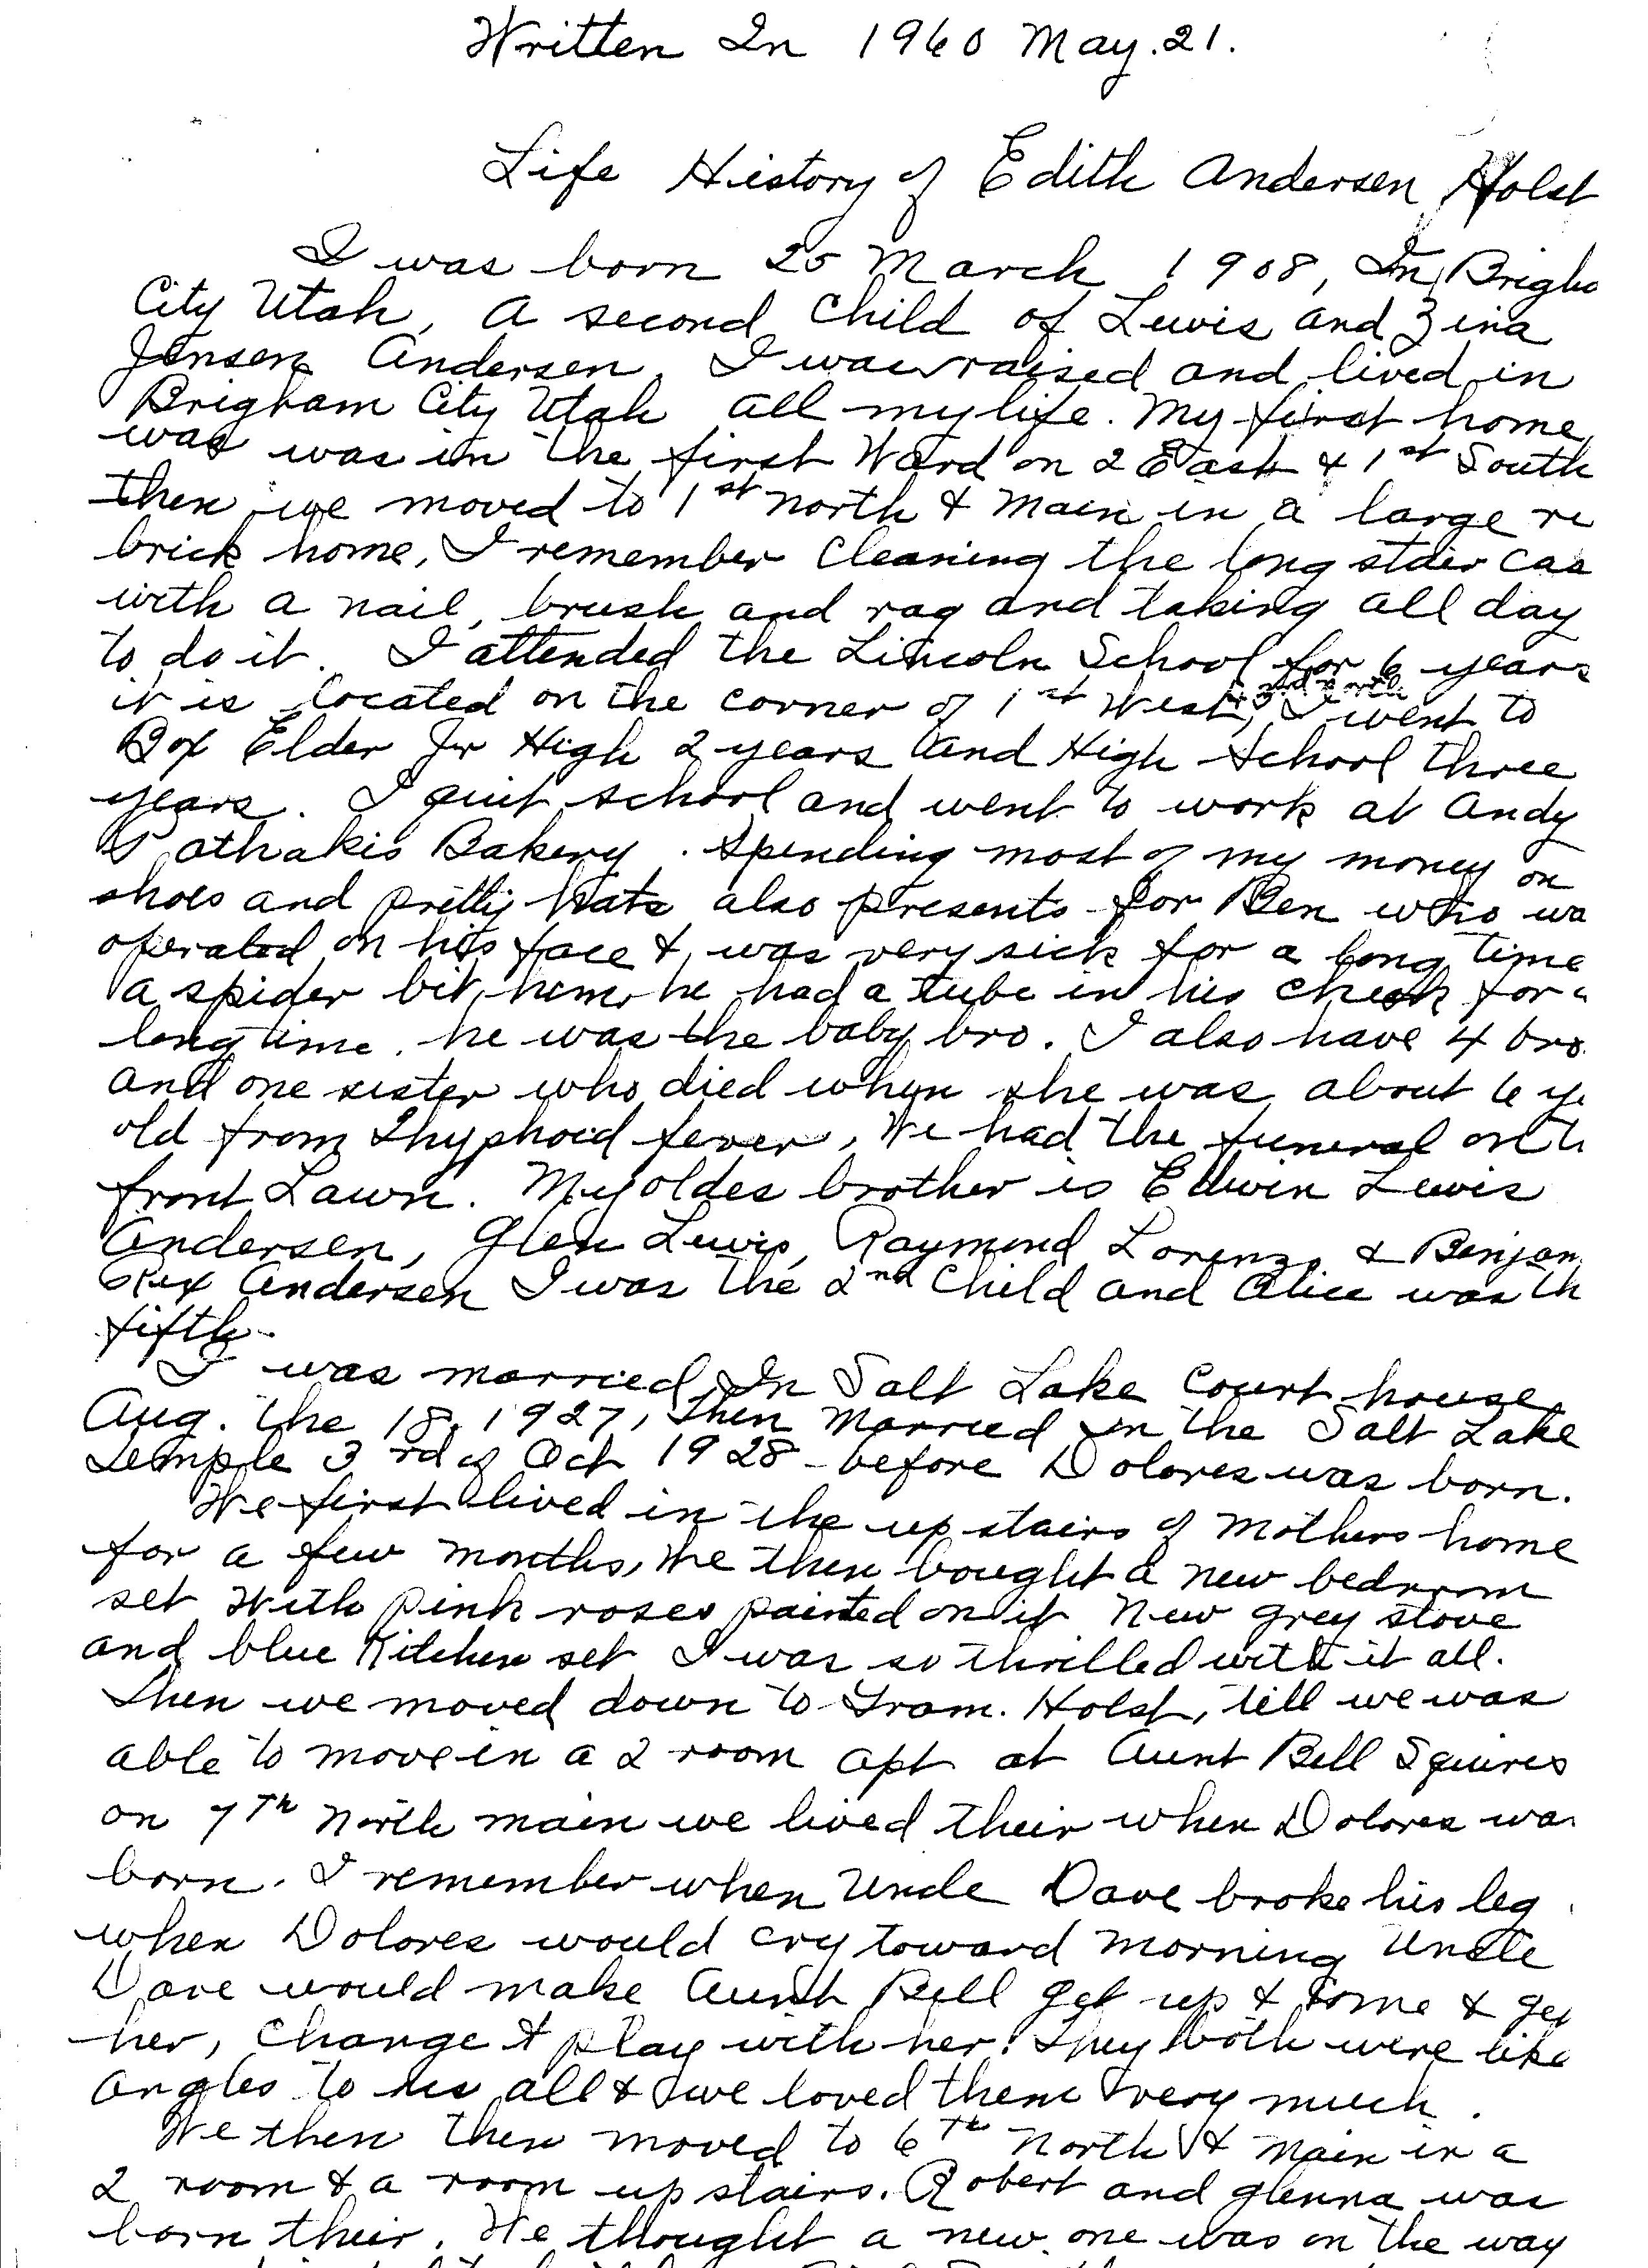 Written In 1960 May. 21.
Life History of Edith Andersen Holst
I was born 25 March 1908, In Brigha
City Utah, A second child of Lewis and Zina
Jensen Andersen. I was raised and lived in
Brigham City Utah all my life. My first home
was was in the first Ward on 2 East & 1st South
then we moved to 1st north & Main in a large re
brick home, I remember cleaning the long stair cas
with a nail, brush and rag and taking all day
to do it. I attended the Lincoln School for 6 years
it is located on the corner of 1st West & 3rd North, I went to
Box Elder Jr High 2 years and High School three
years. I quit school and went to work at Andy
Pathakis Bakery. Spending most of my money on
shoes and pretty hats also presents for Ben who wa
operated on his face & was very sick for a long time
a spider bit him, he had a tube in his cheek for a
long time. he was the baby bro. I also have 4 bro.
and one sister who died when she was about 6 ye
old from Thyphoid fever, We had the funeral on th
front Lawn. My oldes brother is Edwin Lewis
Andersen, Glen Lewis, Raymond Lorenzo & Benjam
Rex Andersen I was the 2nd Child and Alice was th
fifth.
I was married In Salt Lake Court house
Aug. the 18, 1927, Then Married in the Salt Lake
Temple 3rd of Oct 1928 - before Dolores was born.
We first lived in the up stairs of Mothers home
for a few months, We then bought a new bedroom
set with pink roses painted on it New grey stove
and blue Kitchen set I was so thrilled with it all.
Then we moved down to Gram. Holst, till we was
able to move in a 2 room apt at Aunt Bell Squires
on 7th North main we lived their when Dolores wa
born. I remember when Uncle Dave broke his leg
when Dolores would cry toward morning Uncle
Dave would make Aunt Bell get up & come & get
her, change & play with her. They both were like
angles to us all & we loved them very much.
We then then moved to 6th North & Main in a
2 room & a room up stairs. Robert and Glenna was
born their. We thought a new one was on the way